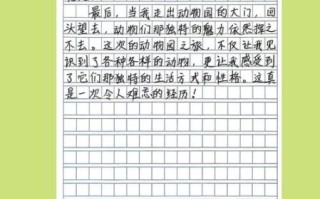 最后，当我走出动物园的大门，回
头望去，动物们那独特的魅力依然挥之
不去。这次的动物园之旅，不仅让我见
识到了各种各样的动物，更让我感受到
了它们那独特的生活方式和性格。这真
是一次令人难忘的经历！